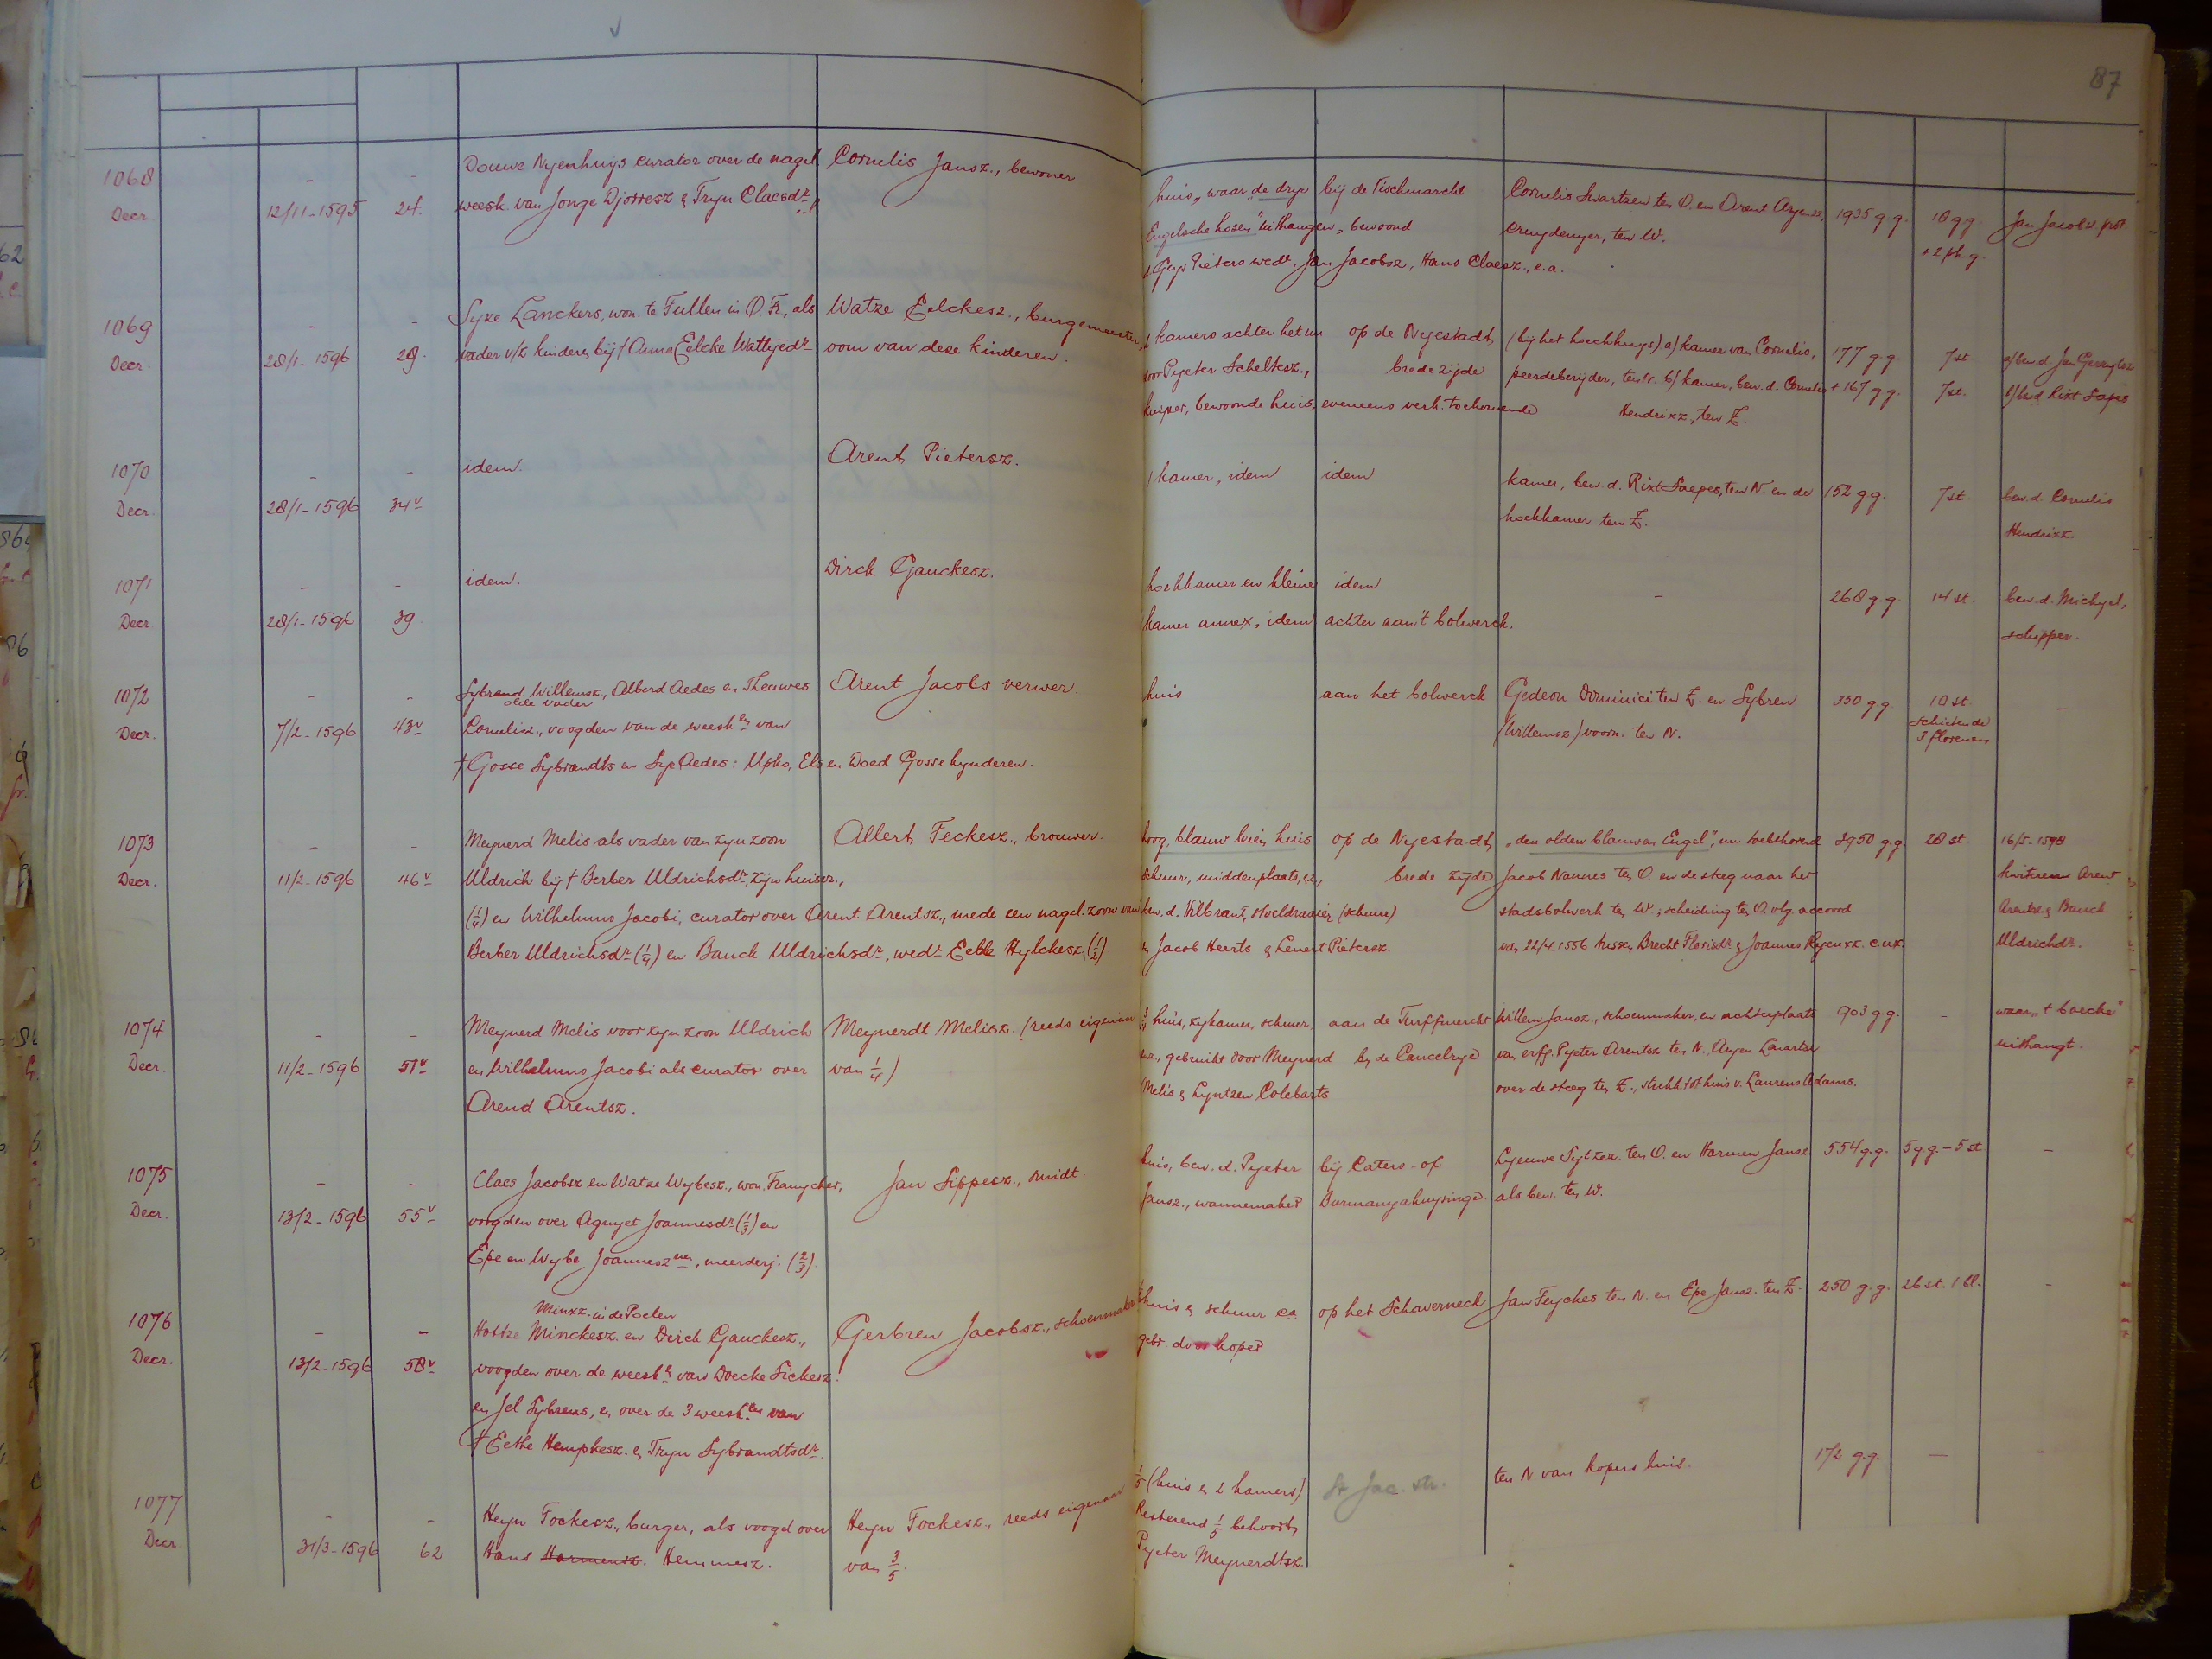 87
1068 - - Douwe Nyenhuys curator over de nagel. Cornelis Jansz., bewoner huis, waar "de drye bij de Fischmarckt Cornelis Swartzen ten O. en Arent Aryensz, 1935 g.g. 18 g.g. Jan Jacobsz. prot
Decr. 12/11-1595 24. weesk. van Jonge Djorresz & Tryn Claesdr Engelsche hosen" uithangen, bewoond cruydenyer, ten W. + 2 ph. g.
d. Geys Pieters wedr, Jan Jacobsz, Hans Claesz., e.a.
1069 - - Syze Lanckers, won. te Fullen in O. Fr., als Watze Eelckesz., burgemeester, 2 kamers achter het nu op de Nyestadt, (by het hoeckhuys) a) kamer van Cornelis, 177 g.g. 7 st. a) bew. d. Jan Gerrytsz
Decr. 28/1-1596 29. vader v/z kinderen bij † Anna Eelcke Wattyedr oom van deze kinderen. door Pyeter Scheltesz., brede zijde peerdeberijder, ten N. b) kamer, bew. d. Cornelis + 167 g.g. 7 st. b) bew. d. Rixt Sapes
kuiper, bewoonde huis, eveneens verk. toekomende Hendrixz, ten Z.
1070 - - idem. Arent Pietersz. 1 kamer, idem idem kamer, bew. d. Rixt Saepes, ten N. en de 152 g.g. 7 st. bew. d. Cornelis
Decr. 28/1-1596 34v hoekkamer ten Z. Hendrixz.
1071 - - idem. Dirck Gauckesz. hoekkamer en kleine idem - 268 g.g. 14 st. bew. d. Michyel,
Decr. 28/1-1596 39. kamer annex, idem achter aan 't bolwerck. schipper.
1072 - - Sybrand Willemsz., Alberd Aedes en Theuwes Arent Jacobs verwer. huis aan het bolwerck Gedeon Dominici ten Z. en Sybren 350 g.g. 10 st. -
olde vader
Decr. 7/2-1596 43v Cornelisz., voogden van de weesken van (Willemsz.) voorn. ten N. schietende 3 florenen
† Gosse Sybrandts en Syp Aedes: Upko, Els en Doed Gosse kynderen.
1073 - - Meynerd Melis als vader van zyn zoon Allert Feckesz., brouwer. hoog, blauw leien huis op de Nyestadt, "den olden blauwen Engel", nu toebehorend 3950 g.g. 28 st. 16/5-1598
Decr. 11/2-1596 46v Uldrich bij † Berber Uldrichsdr, zijn huisvr., schuur, middenplaats, ez., brede zijde Jacob Nannes ten O. en de steeg naar het kwiteren Arent
(1/4) en Wilhelmus Jacobi, curator over Arent Arentsz., mede een nagel. zoon van bew. d. Hilbrant, stoeldraaier (schuur) stadsbolwerk ten W.; scheiding ten O. vlg. accoord Arentsz & Bauck
Berber Uldrichsdr (1/4) en Bauck Uldrichsdr, wedr Eelke Hylckesz (1/2). & Jacob Heerts & Lenert Pietersz. van 22/4.1556 tussen Brecht Florisdr & Joannes Ryenxz. c.ux. Uldrichdr.
1074 - - Meynerd Melis voor zyn zoon Uldrich Meynerdt Melisz. (reeds eigenaar 1/4 huis, zykamer, schuur, aan de Turffmerckt Willem Jansz., schoenmaker, en achterplaats 903 g.g. - waar "t boecke"
Decr. 11/2-1596 51v en Wilhelmus Jacobi als curator over van 1/4) enz., gebruikt door Meynerd by de Cancelrye van erfg. Pyeter Arentsz ten N., Aryen uithangt.
Arend Arentsz. Melis & Lyntzen Colebarts over de steeg ten Z., strekt tot huis v. Laurens Adams.
1075 - - Claes Jacobsz en Watze Wybesz., won. Franycker, Jan Sippesz., smidt. huis, bew. d. Pyeter bij Caters- of Lyeuwe Sytzez. ten O. en Harmen Jansz. 554 g.g. 5 g.g. - 5 st -
Decr. 13/2-1596 55v voogden over Agnyet Joannesdr (1/3) en Jansz., wannemaker Burmanyahuysinge. als bew. ten W.
Epe en Wybe Joannesz en, meerderj. (2/3).
Minxz. in de Poelen
1076 - - Hottze Minckesz. en Dirck Gauckesz., Gerbren Jacobsz., schoenmaker huis & schuur ca. op het Schaverneck Jan Feyckes ten N. en Epe Jansz. ten Z. 250 g.g. 26 st. 1 bl. -
Decr. 13/2-1596 58v voogden over de weeskn van Doecke Sickesz. gebr. door koper
en Jel Sybrens, en over de 3 weesken van
† Eelke Hempkesz. & Tryn Sybrandtsdr.
1077 - - Heyn Fockesz., burger, als voogd over Heyn Fockesz., reeds eigenaar 1/5 (huis & 2 kamers) St Jac. str. ten N. van kopers huis. 172 g.g. - -
Decr. 31/3-1596 62 Hans Harmensz. Hemmesz. van 3/5. Resterend 1/5 behoort
Pyeter Meynerdtsz.